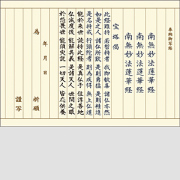 南無妙法蓮華経
南無妙法蓮華経
南無妙法蓮華経
宝塔偈
此経難持 若暫持者 我即歓喜 諸仏亦然
如是之人 諸仏所歎 是則勇猛 是則精進
是名持戒 行頭陀者 則為疾得 無上仏道
能於来世 読持此経 是真仏子 住淳善地
仏滅度後 能解其義 是諸天人 世間之眼
於恐畏世 能須臾説 一切天人 皆応供養
為
年 月 日
謹写